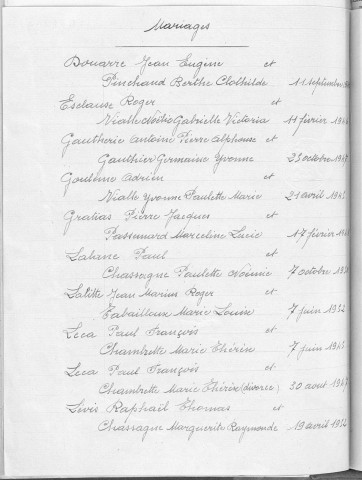 Mariages
Douarre Jean Eugène et
Pinchaud Berthe Clothilde 11 septembre
Esclause Roger et
Vialle Gabrielle Victoria 11 février
Gautherie Antoine Pierre Alphonse et
Gauthier Germaine Yvonne 25 octobre
Adrien et
Vialle Yvonne Paulette Marie 21 avril 1945
Gratias Pierre Jacques et
Passemard Marceline Lucie 17 février
Labane Paul et
Chassagne Paulette Noëmie 7 octobre
Lafitte Jean Marius Roger et
Tabailloux Marie Louise 7 juin 1952
Leca Paul François et
Chambrette Marie Thérèse 7 juin 1945
Leca Paul François et
Chambrette Marie Thérèse (divorce) 30 aout 1947
Livis Raphaël Thomas et
Chassagne Marguerite Raymonde 19 avril 1952